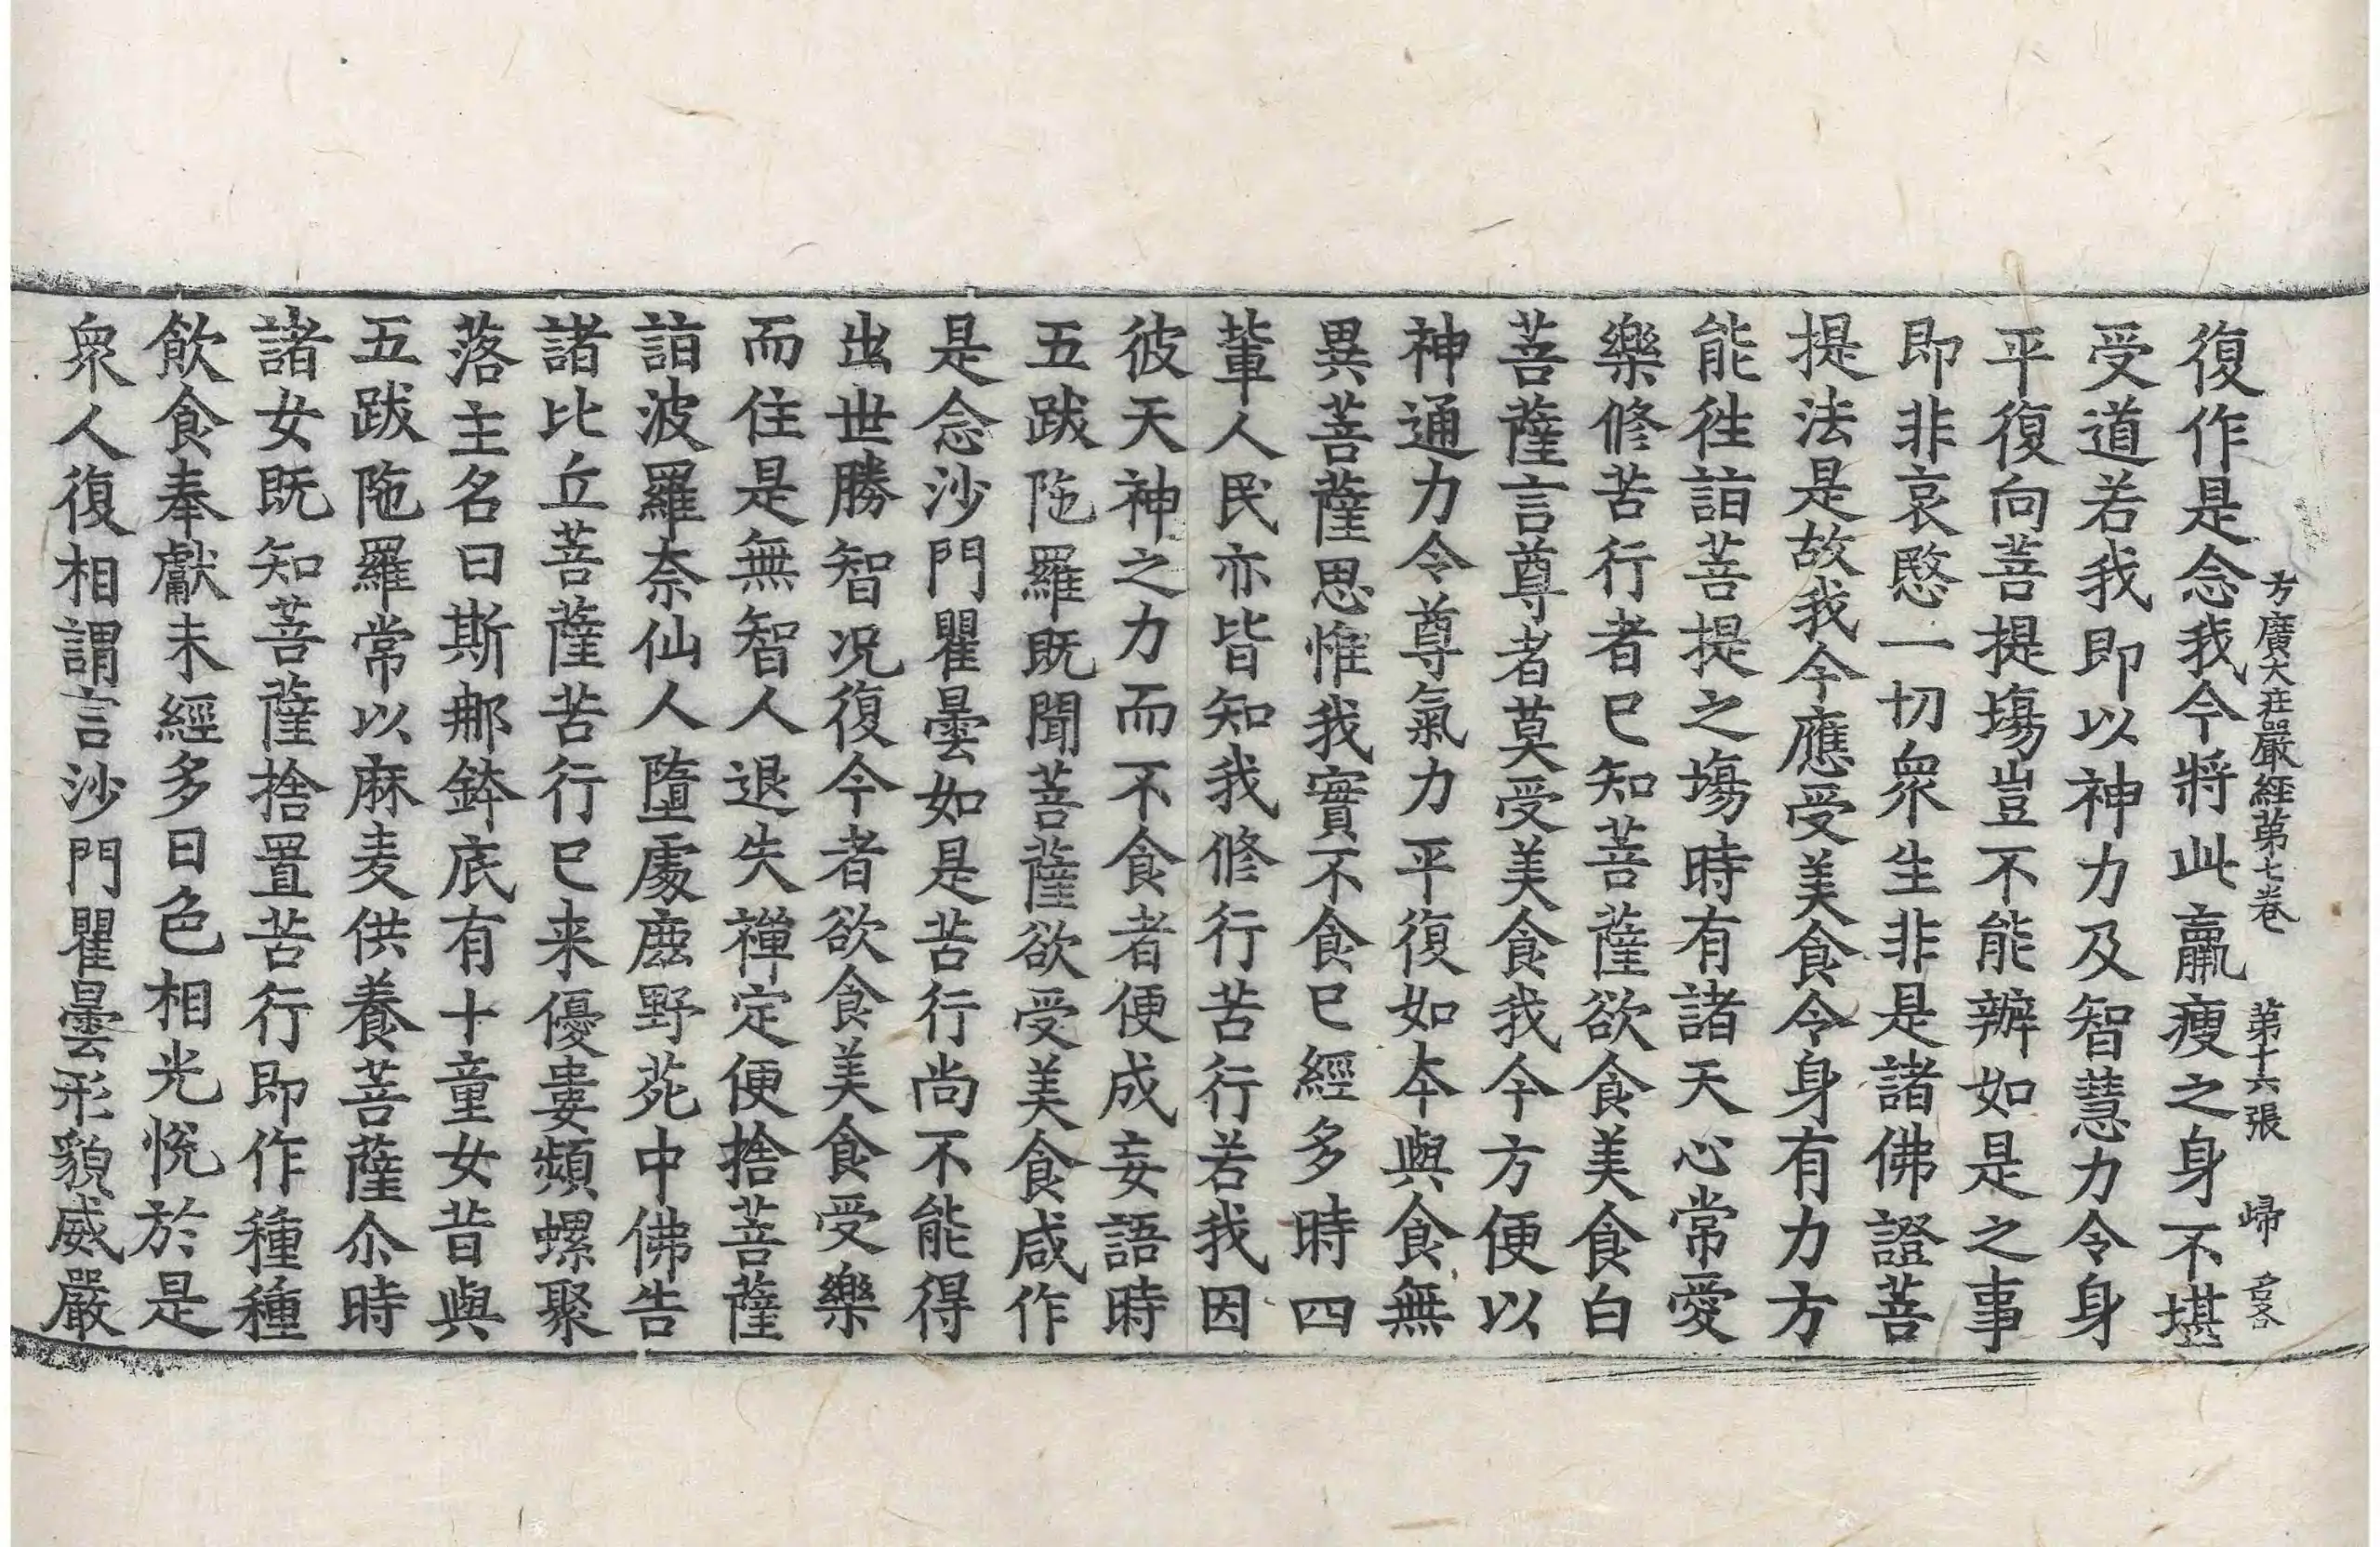 方廣大莊嚴經第七卷 第十六張 歸
復作是念我今將此羸瘦之身不堪
受道若我即以神力及智慧力令身
平復向菩提塲豈不能辦如是之事
即非哀愍一切衆生非是諸佛證菩
提法是故我今應受美食令身有力方
能徃詣菩提之塲時有諸天心常愛
樂修苦行者已知菩薩欲食美食白
菩薩言尊者莫受美食我今方便以
神通力令尊氣力平復如本與食無
異菩薩思惟我實不食已經多時四
輩人民亦皆知我修行苦行若我因
彼天神之力而不食者便成妄語時
五跋陁羅既聞菩薩欲受美食咸作
是念沙門瞿曇如是苦行尚不能得
出世勝智况復今者欲食美食受樂
而住是無智人退失禪定便捨菩薩
詣波羅奈仙人墮處鹿野苑中佛告
諸比丘菩薩苦行已来優婁頻螺聚
落主名曰斯那鉢底有十童女昔與
五跋陁羅常以麻麦供養菩薩尒時
諸女既知菩薩捨置苦行即作種種
飲食奉獻未經多日色相光悅於是
衆人復相謂言沙門瞿曇形貌威嚴